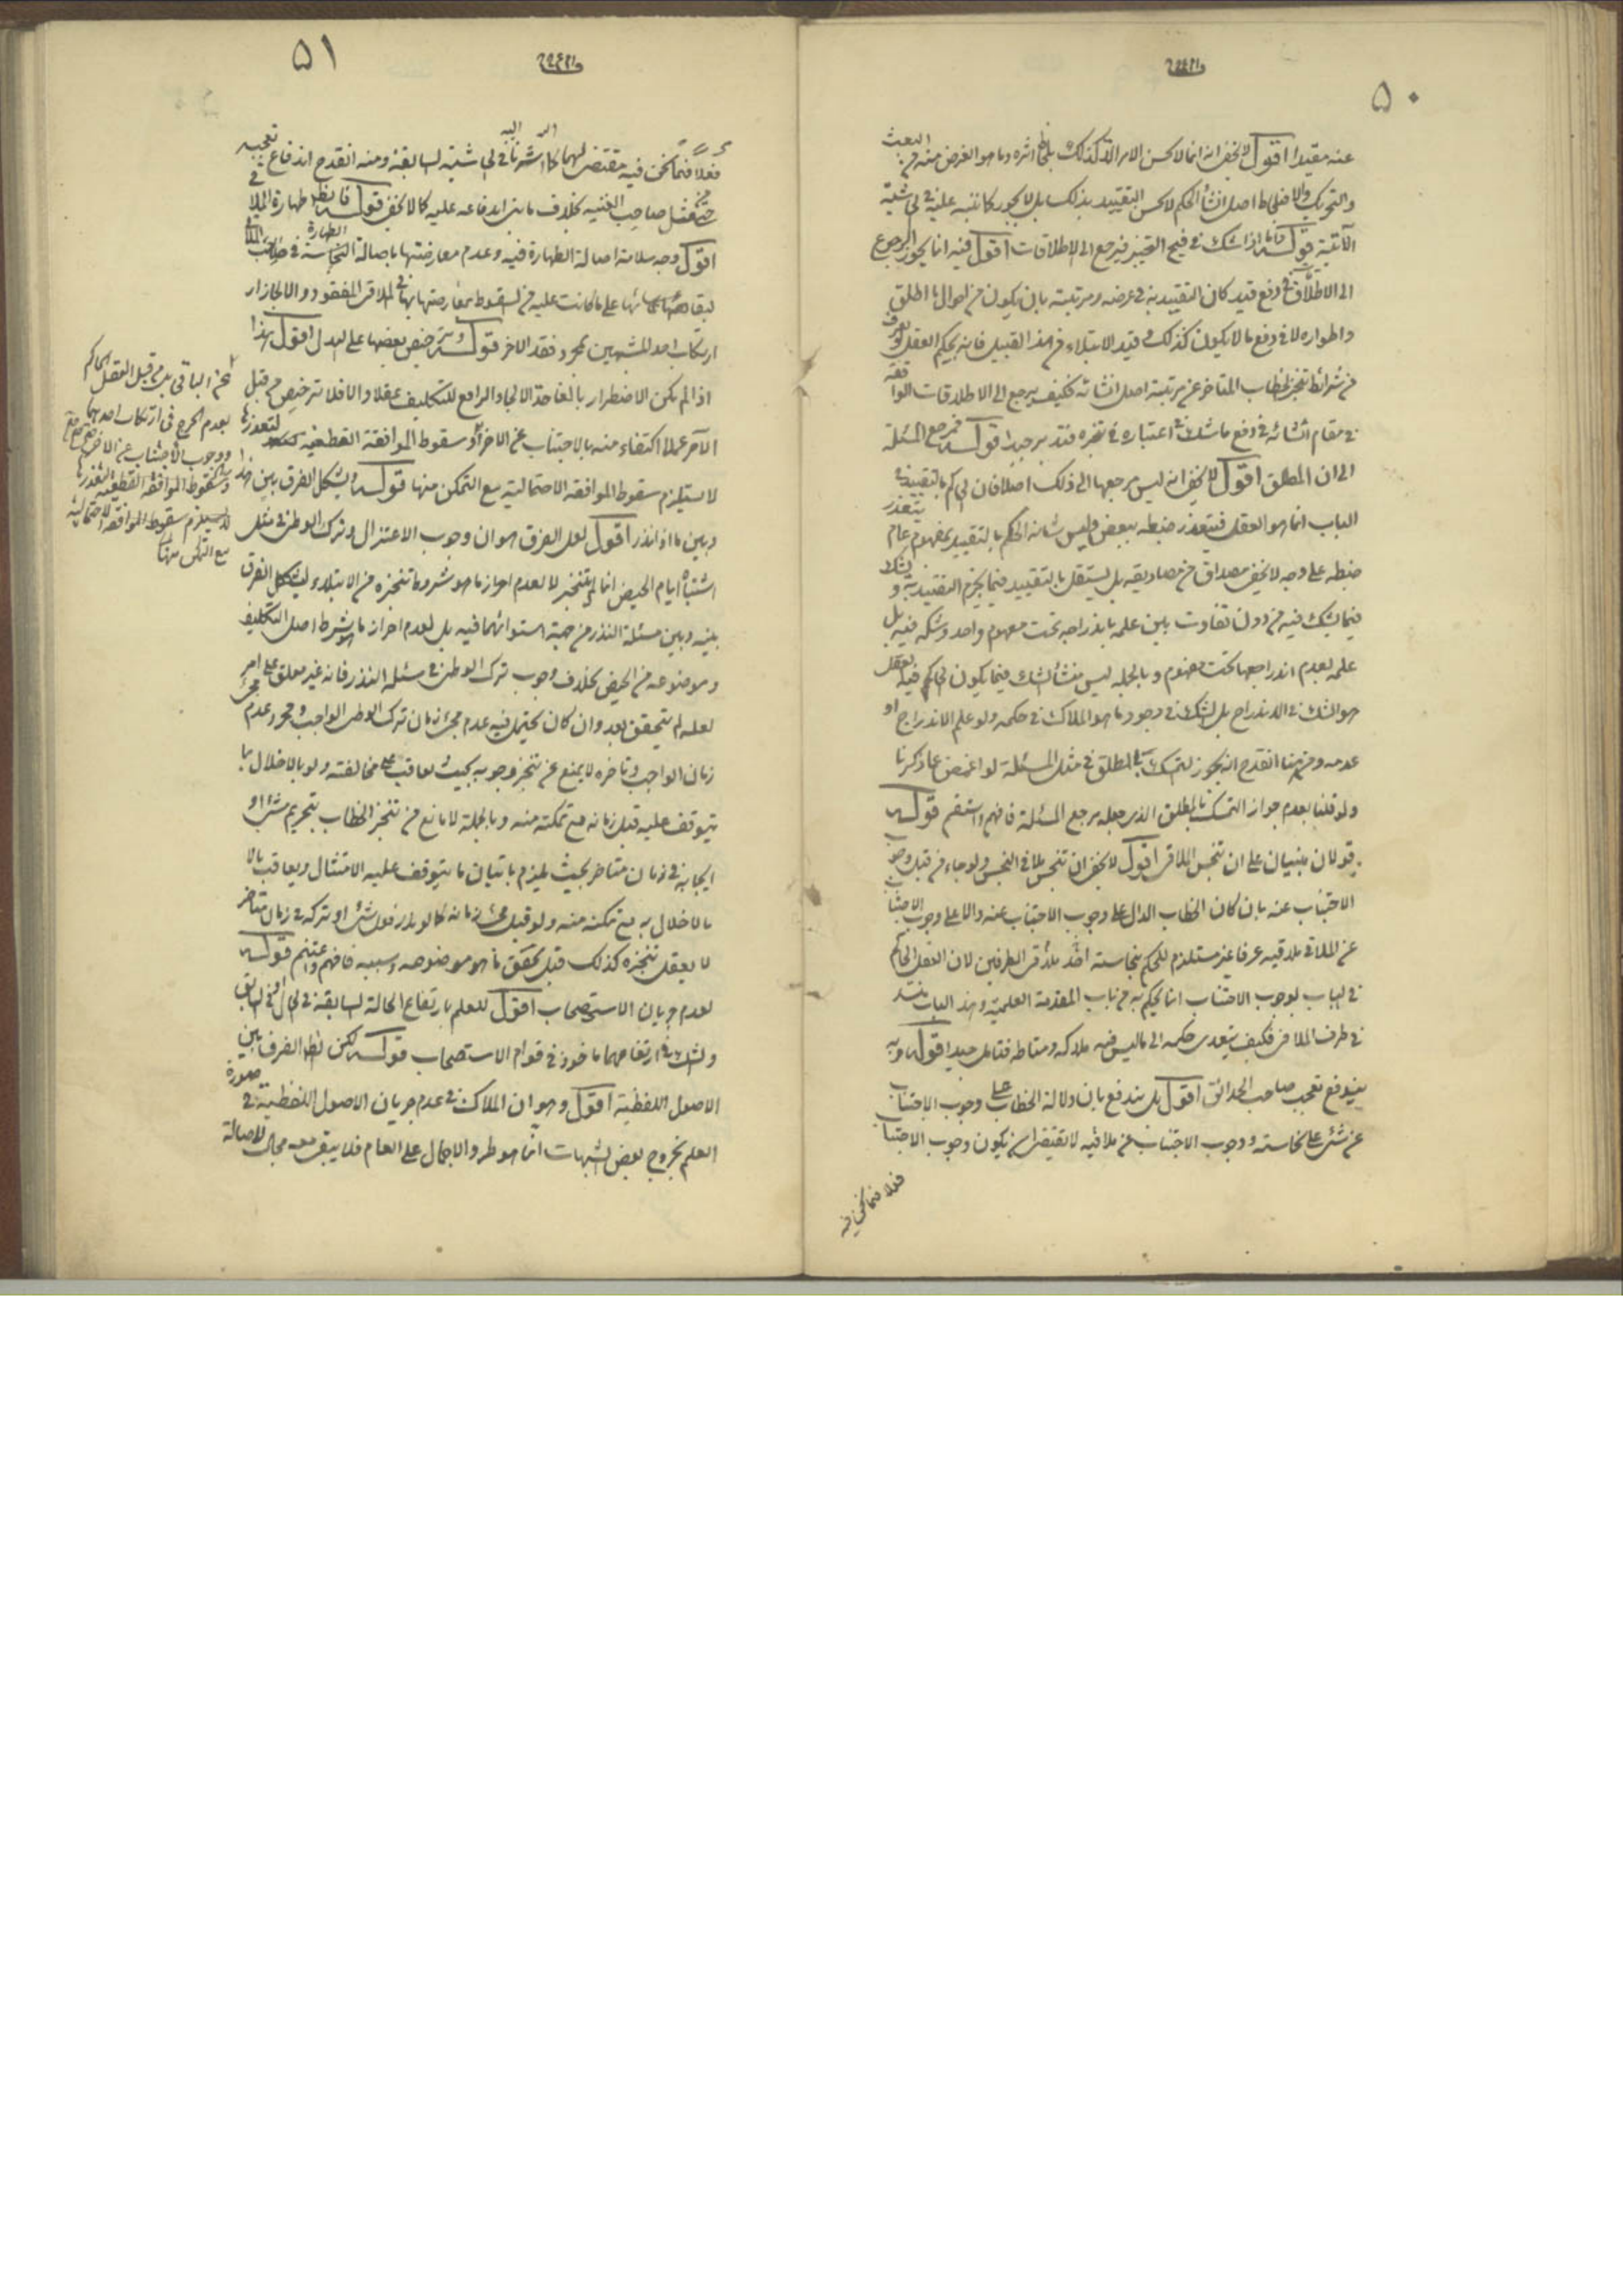 ٥٠
عنه مقيدا اقول لا يخفى انه انما لا يحسن الامر الا كذلك بلحاظ اثره وما هو الغرض منه من البعث
والتحريك والا فبلحاظ اصل انشاء الحكم لا يحسن التقييد بذلك بل لا يجوز كما ننبه عليه في الحاشية
الآتية قوله فاذا شك في قبح التنجيز فيرجع الى الاطلاقات اقول فيه انما يجوز الرجوع
الى الاطلاق في دفع قيد كان التقييد به في عرضه ومرتبته بان يكون من احوال ما اطلق
واطواره لا في دفع ما لا يكون كذلك وقيد الابتلاء من هذا القبيل فانه بحكم العقل
من شرائط تنجز الخطاب المتاخر عن مرتبة اصل انشائه فكيف يرجع الى الاطلاقات الواقعة
في مقام انشائه في دفع ما شك في اعتباره في تنجزه فتدبر جيدا قوله فمرجع المسئلة
الى ان المطلق اقول لا يخفى انه ليس مرجعها الى ذلك اصلا فان الحاكم بالتقييد في
الباب انما هو العقل فيتعذر ضبطه ببعض وليس شانه الحكم بالتقييد بمفهوم عام يتعذر
ضبطه على وجه لا يخفى مصداق من مصاديقه بل يستقل بالتقييد فيما يجزم التقييد به و يشك
فيما يشك فيه من دون تفاوت بين علمه باندراجه تحت مفهوم واحد وشكه فيه بل
علمه بعدم اندراجهما تحت مفهوم وبالجملة ليس منشأ الشك فيما يكون الحاكم فيه العقل
هو الشك في الاندراج بل الشك في وجود ما هو الملاك في حكمه ولو علم الاندراج او
عدمه ومن هنا انقدح انه يجوز التمسك بالمطلق في مثل المسئلة لو اغمض عما ذكرنا
ولو قلنا بعدم جواز التمسك بالمطلق الذي جعله مرجع المسئلة فافهم واستقم قوله
قولان مبنيان على ان تنجس الملاقي اقول لا يخفى ان تنجس ملاقي النجس ولو جاء من قبل وجوب
الاجتناب عنه بان كان الخطاب الدال على وجوب الاجتناب عنه دالا على وجوب الاجتناب
عن الملاقي ملاقيه عرفا غير مستلزم للحكم بنجاسته احد طرفين لان العقل الحاكم
في الباب بوجوب الاجتناب انما يحكم به من باب المقدمة العلمية وهذا الباب منسد
في طرف الملاقي فكيف يتعدى حكمه الى ما ليس فيه ملاكه ومناطه فتامل جيدا قوله وبه
يندفع تعجب صاحب الحدائق اقول بل يندفع بان دلالة الخطاب على وجوب الاجتناب
عن شئ على نجاسته ووجوب الاجتناب عن ملاقيه لا تقتضى ان يكون وجوب الاجتناب
فعلا فيما نحن فيه
٥١
فعلا فيما نحن فيه مقتضى لهما كما اشرنا اليه في الحاشية السابقة ومنه انقدح اندفاع تعجبه
عن مثل صاحب الغنية بخلاف ما بنى اندفاعه عليه كما لا يخفى قوله فانظر طهارة الملاقي
اقول وجه سلامة اصالة الطهارة فيه وعدم معارضتها باصالة الطهارة في صاحب الملاقي
لبقائها على ما كانت عليه من السقوط بمعارضتها بها في الملاقى المفقود والا لجاز ار
ارتكاب احد المشتبهين بمجرد فقد الاخر قوله وترخيص بعضها على البدل اقول هذا
اذا لم يكن الاضطرار بالغا حد الالجاء الرافع للتكليف عقلا والا فلا ترخيص من قبل
الآمر عملا اكتفاء منه بالاجتناب عن الاخر وسقوط الموافقة القطعية لتعذرها
لا يستلزم سقوط الموافقة الاحتمالية مع التمكن منها قوله ويشكل الفرق بين هذا
وبين ما اذا نذر اقول لعل الفرق هو ان وجوب الاعتزال وترك الوطى في مثل
اشتباه ايام الحيض انما لم يتنجز لا لعدم احراز ما هو شروط تنجزه من الابتلاء ليشكل الفرق
بينه وبين مسئلة النذر من جهة استوائهما فيه بل لعدم احراز ما هو شرط اصل التكليف
وموضوعه من الحيض بخلاف وجوب ترك الوطى في مسئلة النذر فانه غير معلق على امر
لعله لم يتحقق بعد وان كان يحتمل فيه عدم مجئ زمان ترك الوطى الواجب ومجرد عدم مجئ
زمان الواجب وتاخره لا يمنع عن تنجز وجوبه بحيث يعاقب على مخالفته ولو بالاخلال بما
يتوقف عليه قبل زمانه مع تمكنه منه وبالجملة لا مانع من تنجز الخطاب بتحريم شئ او
ايجابه في زمان متاخر بحيث يلزم باتيان ما يتوقف عليه الامتثال ويعاقب بالا
بالاخلال به مع تمكنه منه ولو قبل مجئ زمانه كما لو نذر فعل شئ او تركه في زمان متاخر
لا يعقل تنجزه كذلك قبل تحقق ما هو موضوعه وسببه فافهم واغتنم قوله
لعدم جريان الاستصحاب اقول للعلم بارتفاع الحالة السابقة في الحال او في السابق
والشك في ارتفاعهما ماخوذ في قوام الاستصحاب قوله لكن الظاهر الفرق بين
الاصول اللفظية اقول وهو ان الملاك في عدم جريان الاصول اللفظية في صورة
العلم بخروج بعض الشبهات انما هو طرو الاجمال على العام فلا يبقى معه مجال لاصالة
عن الباقي بل من قبل العقل الحاكم
بعدم الحرج في ارتكاب احدهما
ووجوب الاجتناب عن الاخر
وسقوط الموافقة القطعية لتعذرها
لا يستلزم سقوط الموافقة الاحتمالية
مع التمكن منها